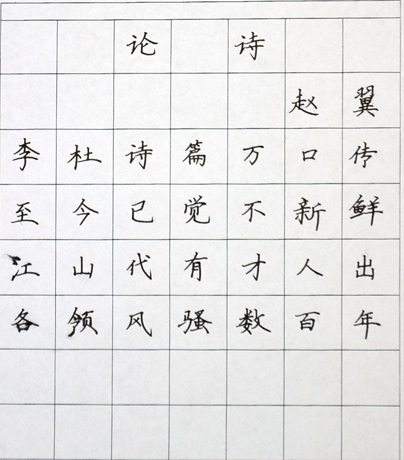 论诗
赵翼
李杜诗篇万口传
至今已觉不新鲜
江山代有才人出
各领风骚数百年